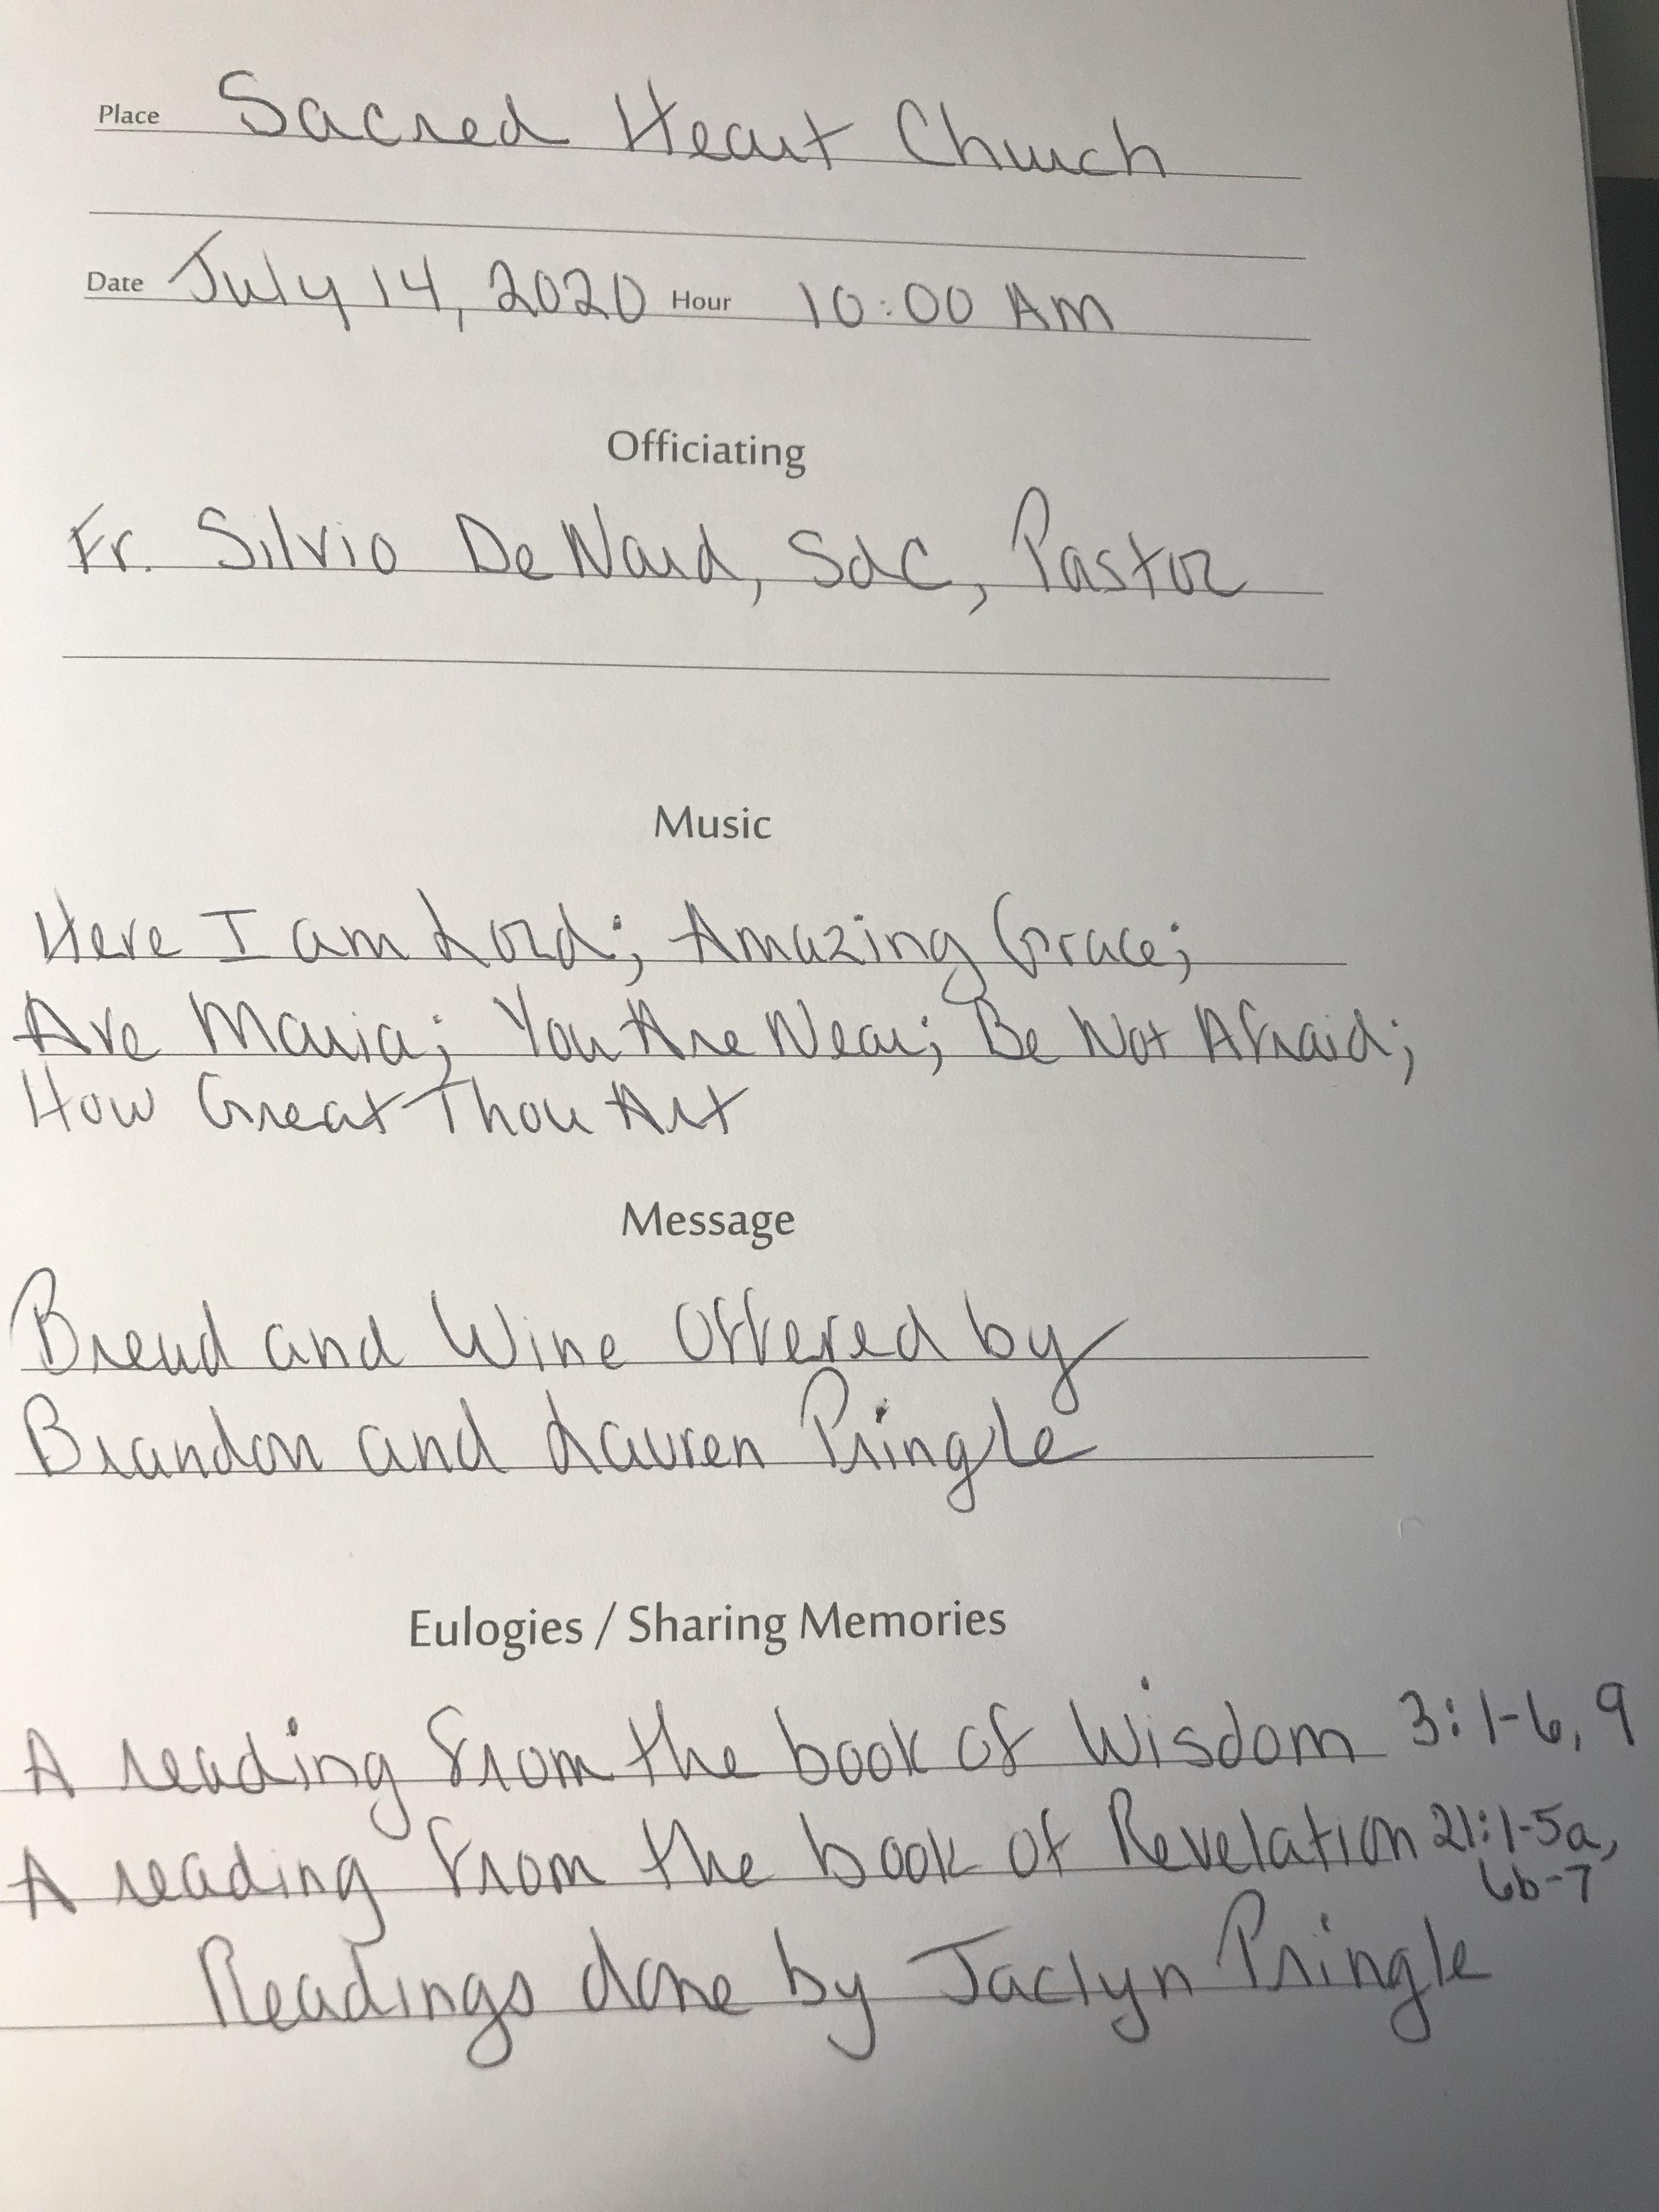 Place Sacred Heart Church
Date July 14, 2020 Hour 10:00 AM
Officiating
Fr. Silvio De Nard, SdC, Pastor
Music
Here I am Lord; Amazing Grace;
Ave Maria; You Are Near; Be Not Afraid;
How Great Thou Art
Message
Bread and Wine Offered by
Brandon and Lauren Pringle
Eulogies / Sharing Memories
A reading from the book of Wisdom 3:1-6, 9
A reading from the book of Revelation 21:1-5a,
6b-7
Readings done by Jaclyn Pringle